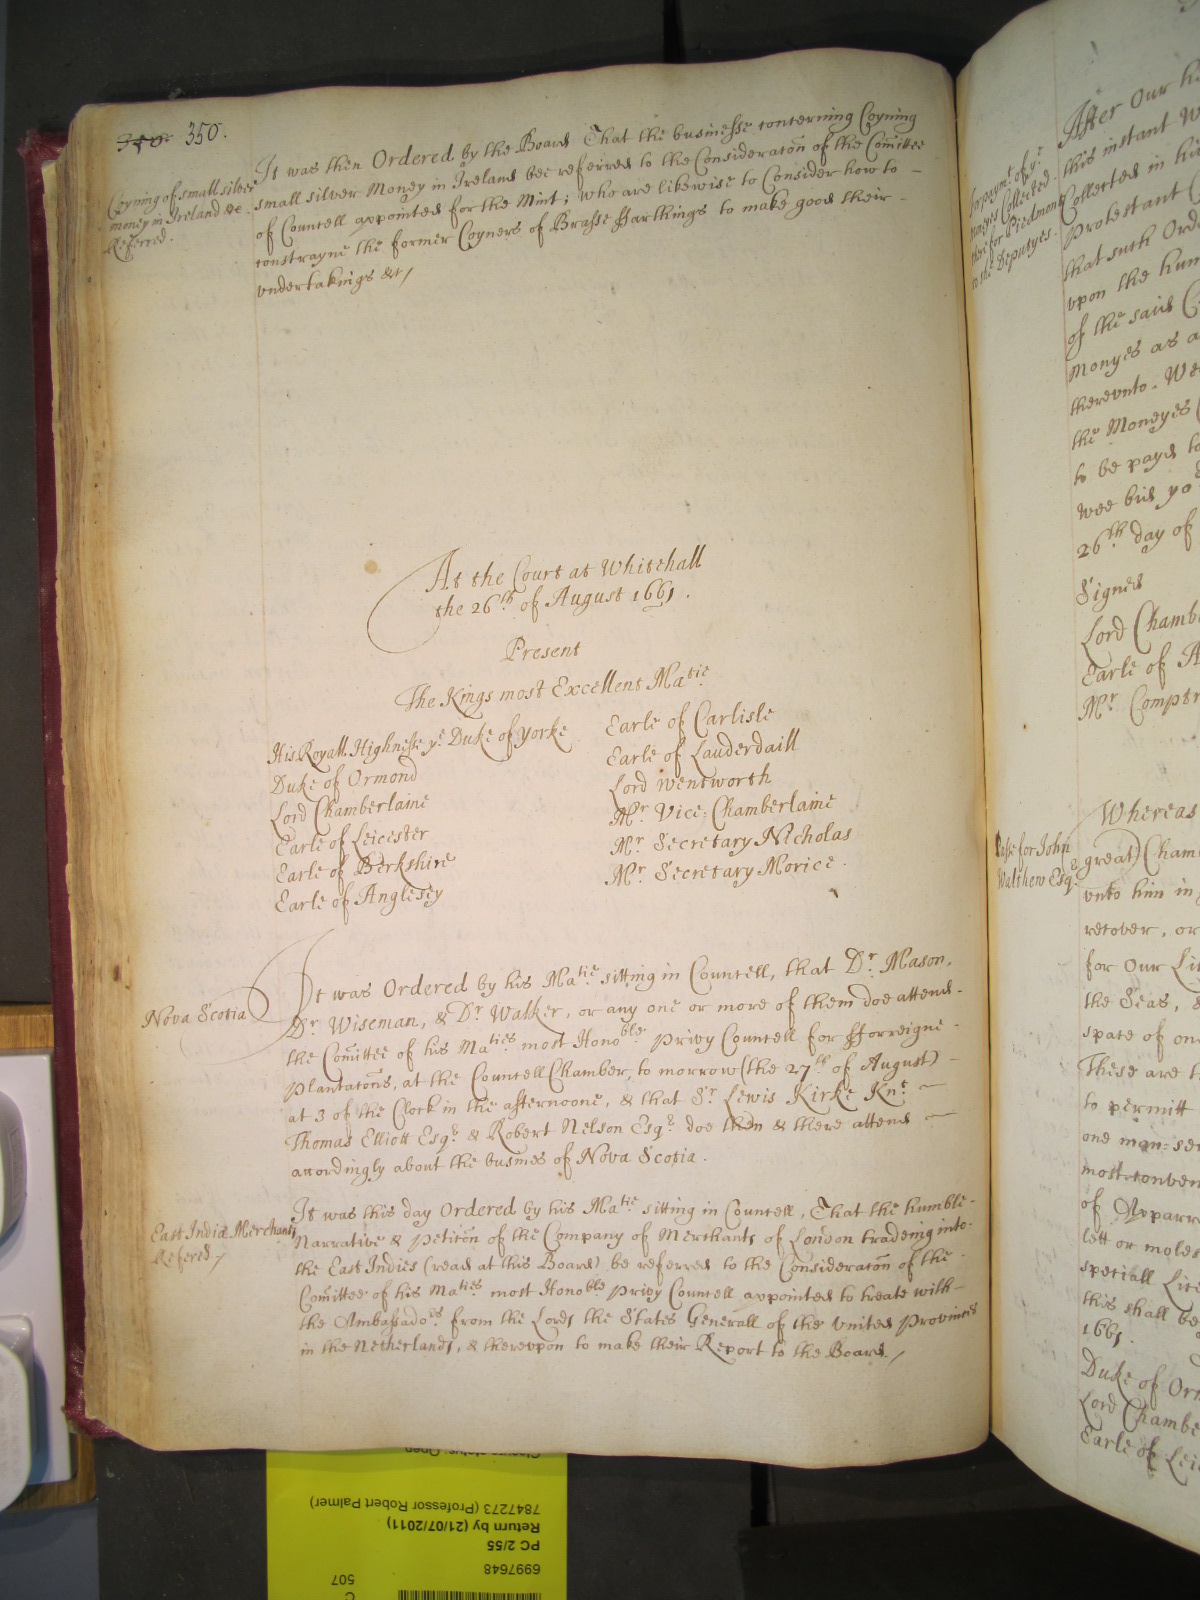 350. 350.
Coyning of small silver
money in Ireland &c.
Referred.
It was then Ordered by the Board That the businesse concerning Coyning
small silver Money in Ireland bee referred to the Consideratōn of the Com̄ittee
of Councell appointed for the Mint; Who are likewise to Consider how to
constrayne the former Coyners of Brasse ffarthings to make good their
undertakings &c/
At the Court at Whitehall
the 26th of August 1661.
Present
The Kings most Excellent Matie
His Royall Highnesse ye Duke of Yorke
Duke of Ormond
Lord Chamberlaine
Earle of Leicester
Earle of Berkshire
Earle of Anglesey
Earle of Carlisle
Earle of Lauderdaill
Lord Wentworth
Mr Vice: Chamberlaine
Mr Secretary Nicholas
Mr Secretary Morice.
Nova Scotia
It was Ordered by his Matie sitting in Councell, that Dr Mason,
Dr Wiseman, & Dr Walker, or any one or more of them doe attend
the Com̄ittee of his Maties most Honoble Privy Councell for fforreigne
Plantatōns, at the Councell Chamber, to morrow (the 27th of August)
at 3 of the Clock in the afternoone, & that Sr Lewis Kirke Knt
Thomas Elliott Esqr & Robert Nelson Esqr doe then & there attend
accordingly about the busines of Nova Scotia.
East India Merchants
Refered/
It was this day Ordered by his Matie sitting in Councell, That the humble
Narrative & Petitōn of the Company of Merchants of London tradeing into
the East Indies (read at this Board) be referred to the Consideratōn of the
Com̄ittee of his Maties most Honoble Privy Councell appointed to treate with
the Ambassadors from the Lords the States Generall of the United Provinces
in the Netherlands, & thereupon to make their Report to the Board./
for paymt of ye
Moneyes Collected
here for Piedmont
to the Deputyes.
After Our h
this instant W
Collected in his
Protestant C
that such Orde
upon the hum
of the said C
Monyes as a
thereunto. We
the Moneyes
to be payd to
wee bid yo
26th day of
Signed
Lord Chamb
Earle of A
Mr Comptr
Passe for John
Walthew Esqr
Whereas
great) Cham
unto him in
recover, or
for Our Li
the Seas, &
space of on
These are t
to permitt
one man-ser
most conven
of Apparr
lett or moles
speciall Lice
this shall be
1661.
Duke of Orm
Lord Chambe
Earle of Lei
Closure status: Open
7847273 (Professor Robert Palmer)
Return by (21/07/2011)
PC 2/55
6997648
507
C